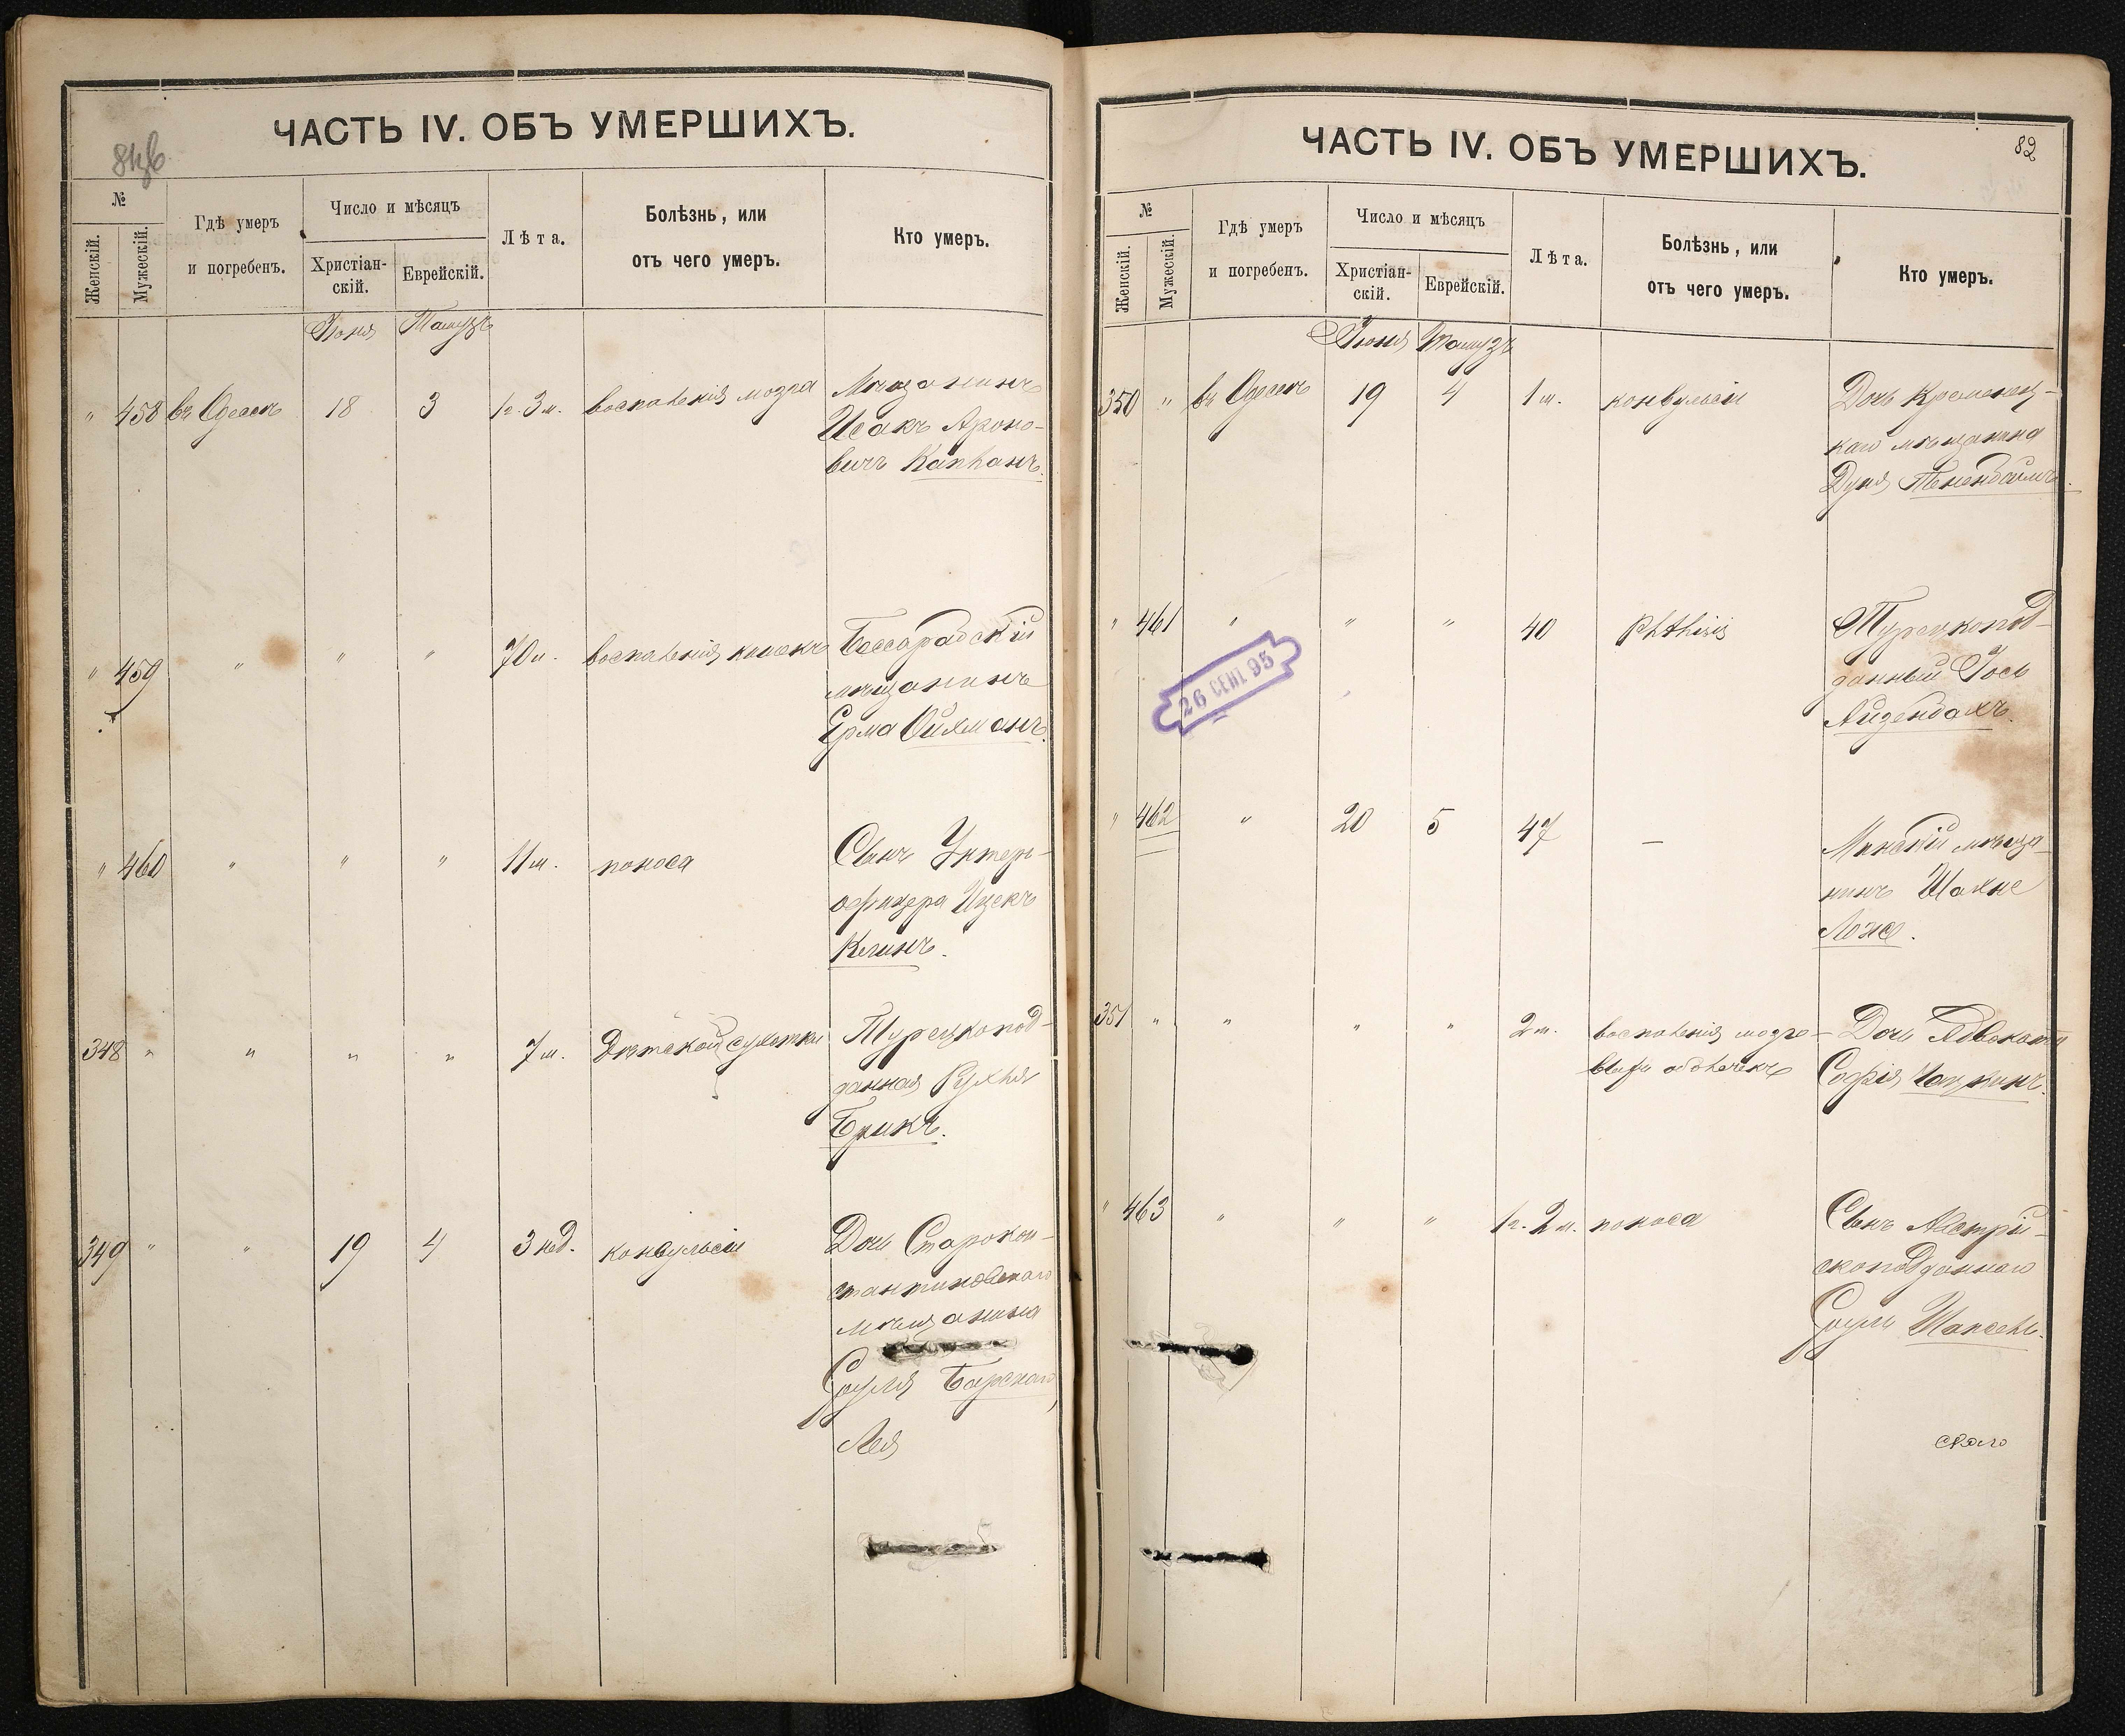 81об
ЧАСТЬ IV. ОБЪ УМЕРШИХЪ.
№
Женскій.
Мужескій.
Гдѣ умеръ
и погребенъ.
Число и мѣсяцъ
Христіан-
скій.
Еврейскій.
Лѣта.
Болѣзнь, или
отъ чего умеръ.
Кто умеръ.
Іюня Тамузъ
" 458 въ Одессѣ 18 3 1г. 3м. воспаленія мозга Мѣщанинъ
Исакъ Ароно-
вичъ Капланъ.
" 459 " " " 70л. воспаленія кишекъ Бессарабскій
мѣщанинъ
Ерма Ойхманъ.
" 460 " " " 11м. поноса Сынъ Унтеръ-
офицера Ицекъ
Клинъ.
348 " " " " 7м. Дѣтской сухотки Турецкопод-
данная Рухля
Брикъ.
349 " " 19 4 3 нед. конвульсіи Дочь Старокон-
стантиновскаго
мѣщанина
Сруля Барскаго,
Лея
82
ЧАСТЬ IV. ОБЪ УМЕРШИХЪ.
№
Женскій.
Мужескій.
Гдѣ умеръ
и погребенъ.
Число и мѣсяцъ
Христіан-
скій.
Еврейскій.
Лѣта.
Болѣзнь, или
отъ чего умеръ.
Кто умеръ.
Іюня Тамузъ
350 " въ Одессѣ 19 4 1м. конвульсіи Дочь Кременец-
каго мѣщанина
Дуня Тененбаумъ.
" 461 " " " 40 Phthisis Турецкопод-
данный Іось
Айзенбахъ.
26 СЕНТ 95
" 462 " 20 5 47 — Минскій мѣща-
нинъ Шахне
351 " " " " 2м. воспаленія мозго-
выхъ оболочекъ Дочь Адвоката
Софія
" 463 " " " 1г. 2м. поноса Сынъ Австрій-
скоподданнаго
Сруль
скаго